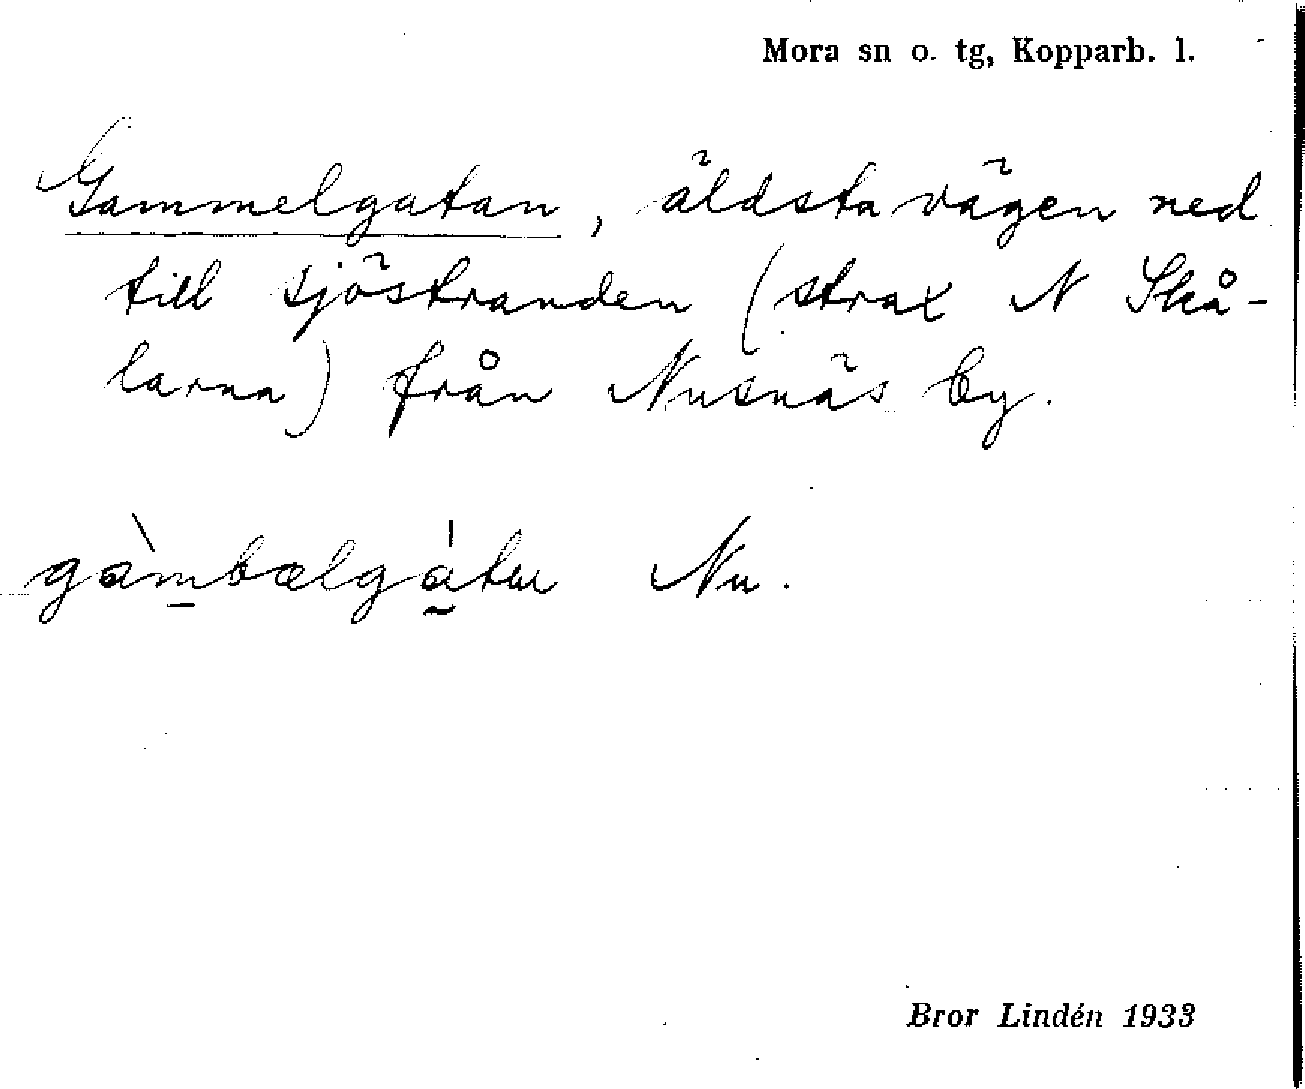 Mora sn o. tg, Kopparb. l.
Gammelgatan, äldsta vägen ned
till sjöstranden (strax N Skå-
larna) från Nusnäs by.
gàmbælgátu Nu.
Bror Lindén 1933